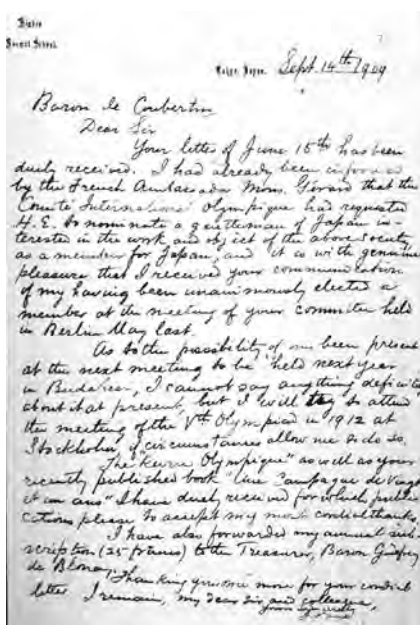 Higher
Normal School.
Tokyo, Japan. Sept. 14th 1909
Baron de Coubertin
Dear Sir
Your letter of June 15th has been
duly received. I had already been informed
by the French Ambassador Mons. Gérard that the
Comité International Olympique had requested
H.E. to nominate a gentleman of Japan in-
terested in the work and object of the above society
as a member for Japan, and it is with genuine
pleasure that I received your communication
of my having been unanimously elected a
member at the meeting of your committee held
in Berlin May last.
As to the possibility of my been present
at the next meeting to be held next year
in Budapest, I cannot say anything definite
about it at present, but I will try to attend
the meeting of the Vth Olympiad in 1912 at
Stockholm if circumstances allow me to do so.
The "Revue Olympique" as well as your
recently published book "Une Campagne de Vingt
et un ans" I have duly received for which publi-
cations please to accept my most cordial thanks.
I have also forwarded my annual sub-
scription (25 francs) to the Treasurer, Baron Godfroy
de Blonay. Thanking you once more for your cordial
letter I remain, my dear sir and colleague,
yours